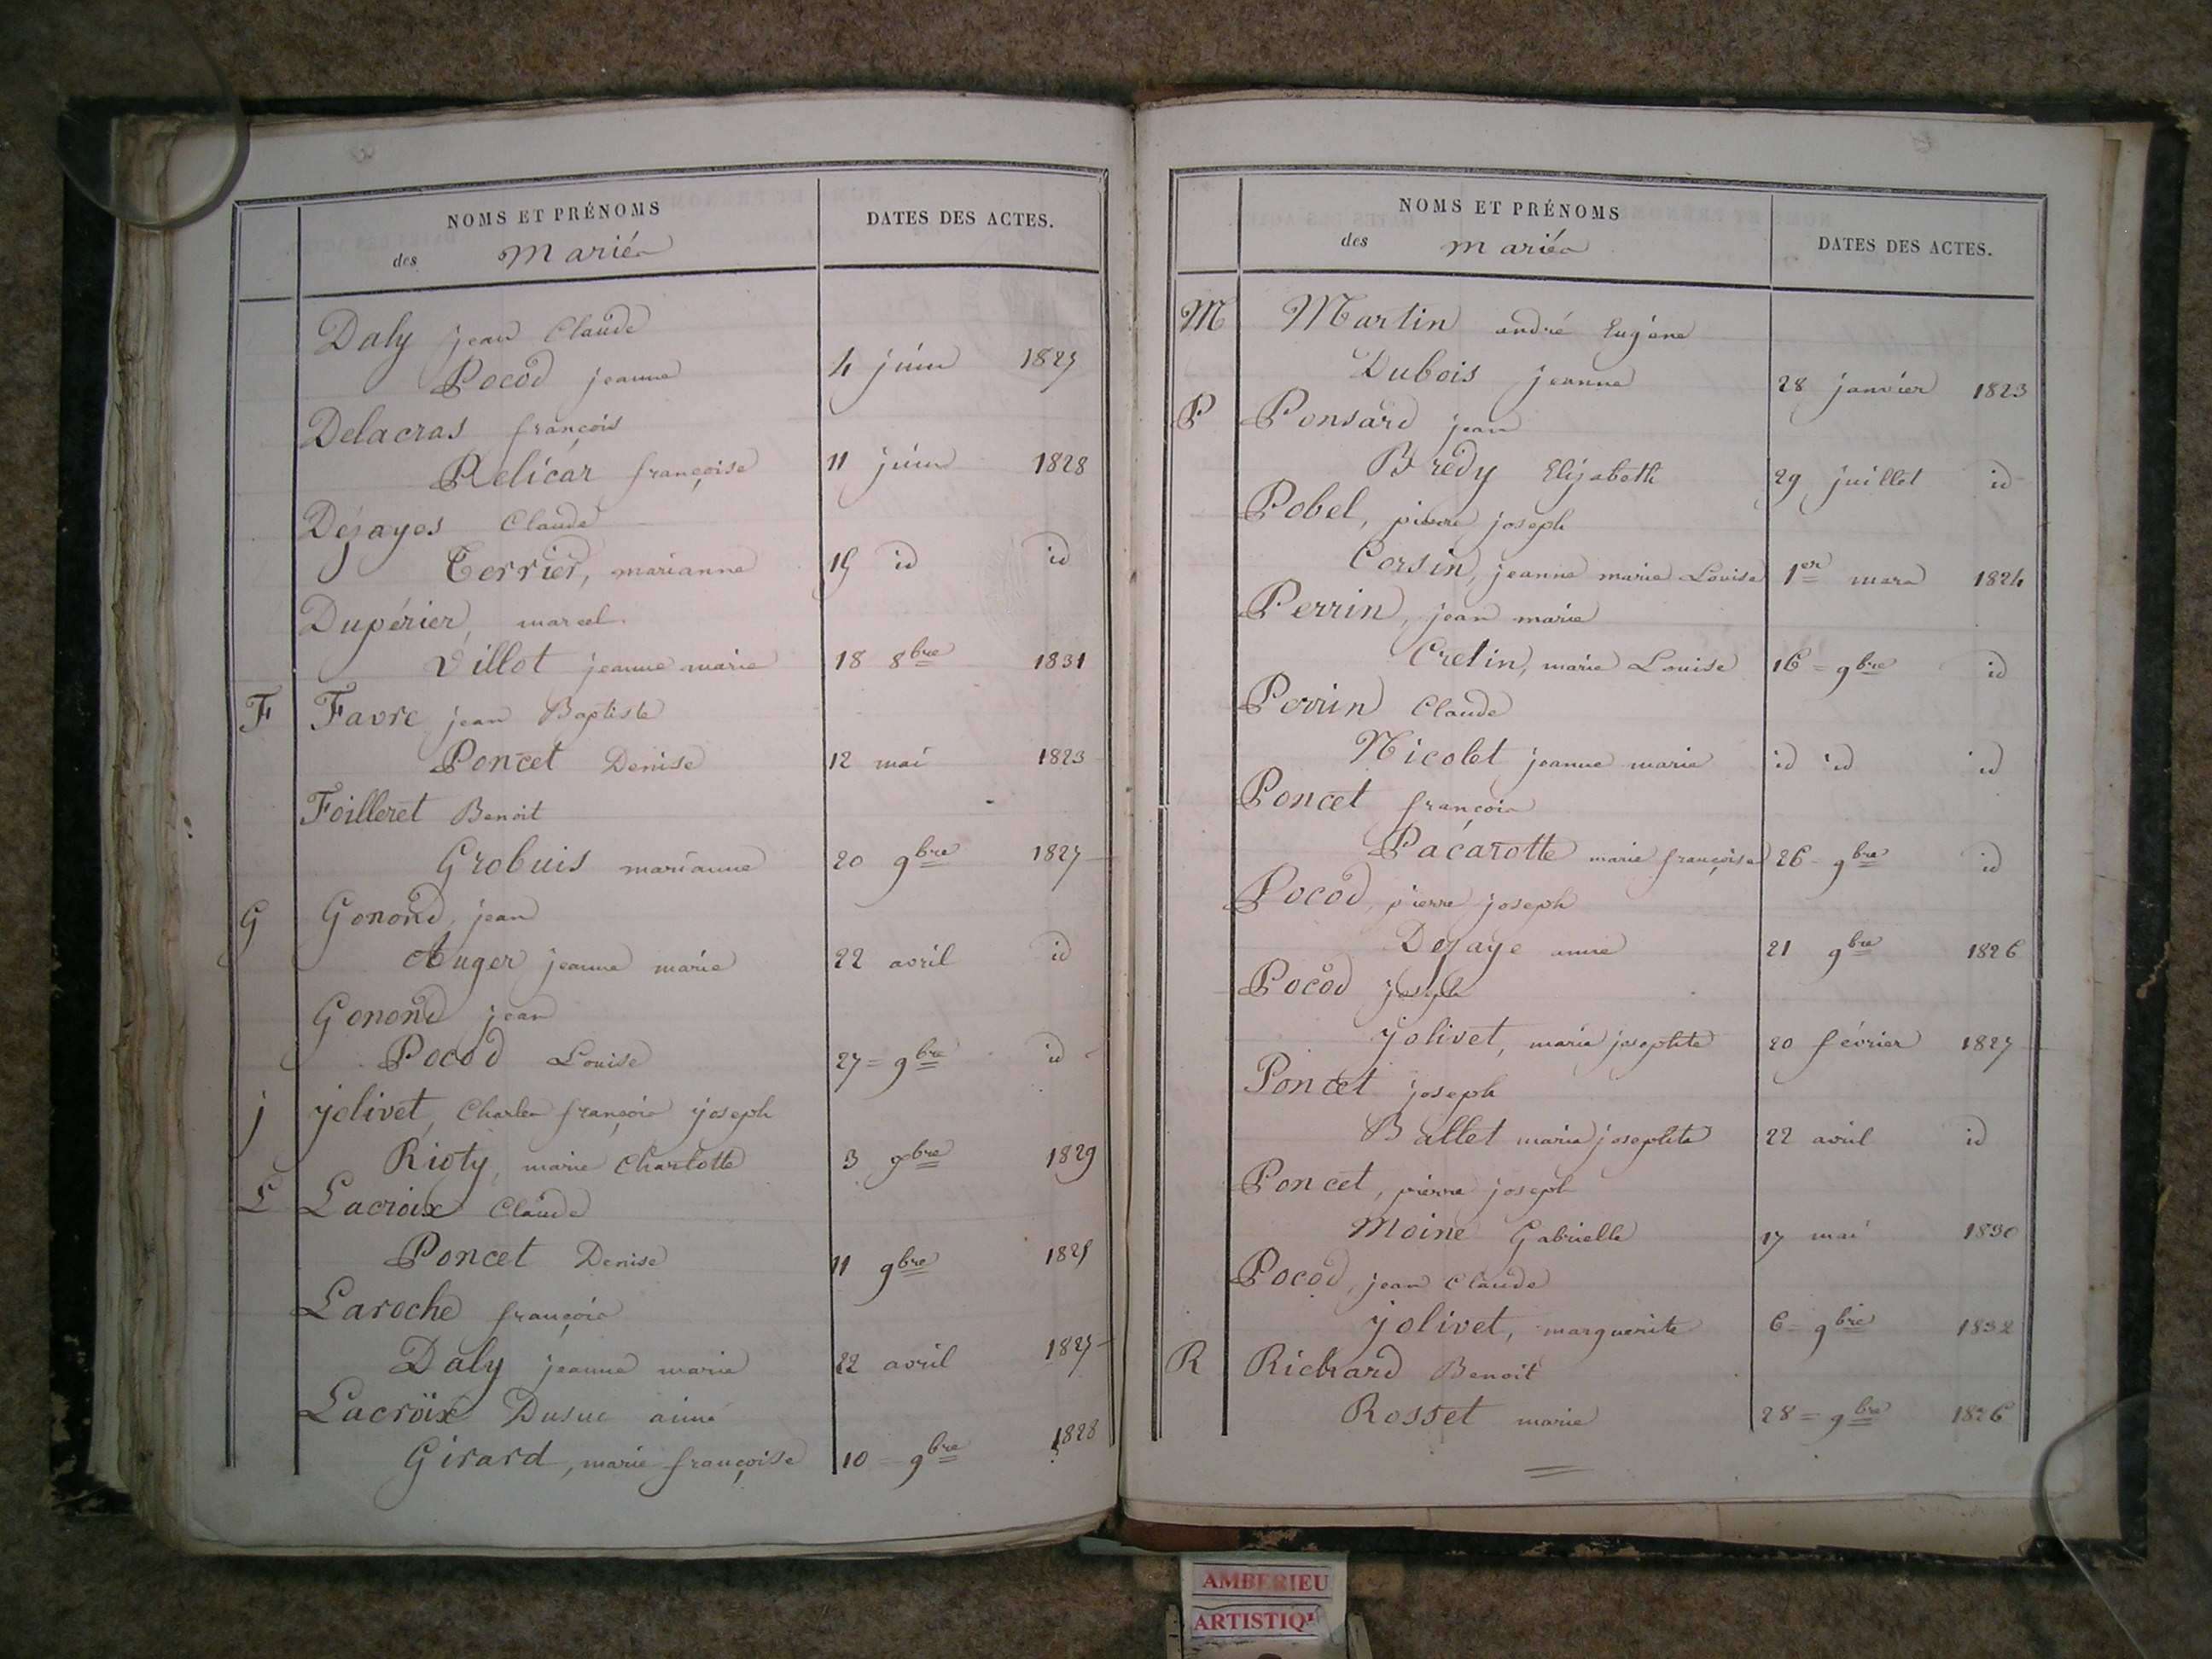 NOMS ET PRÉNOMS
des mariés
DATES DES ACTES.
Daly jean Claude
Pocod jeanne 4 juin 1827
Delacras françois
Relicar françoise 11 juin 1828
Dejayes Claude
Terrier, marianne 19 id id
Dupérier, marcel
Villot jeanne marie 18 8bre 1831
F Favre jean Baptiste
Poncet Denise 12 mai 1823
Foilleret Benoit
Grobuis marianne 20 9bre 1827
G Gonond, jean
Auger jeanne marie 22 avril id
Gonond jean
Pocod Louise 27 = 9bre id
j jolivet, Charles françois joseph
Rioty, marie Charlotte 3 9bre 1829
L Lacroix Claude
Poncet Denise 11 9bre
Laroche françois
Daly jeanne marie 22 avril 1827
Lacroix Dusuc aimé
Girard, marie françoise 10 = 9bre 1828
NOMS ET PRÉNOMS
des mariés
DATES DES ACTES.
M Martin andré Eugène
Dubois jeanne 28 janvier 1823
P Ponsard jean
Bredy Elisabeth 29 juillet id
Pobel, pierre joseph
Corsin, jeanne marie Louise 1er mars 1824
Perrin, jean marie
Cretin, marie Louise 16 = 9bre id
Perrin Claude
Nicolet jeanne marie id id id
Poncet françois
Pacarotte marie françoise 26 = 9bre id
Pocod, pierre joseph
Dejaye anne 21 9bre 1826
Pocod joseph
jolivet, marie josephte 20 février 1827
Poncet joseph
Ballet marie josephte 22 avril id
Poncet, pierre joseph
Moine Gabrielle 17 mai 1830
Pocod, jean Claude
jolivet, marguerite 6 = 9bre 1832
R Richard Benoit
Rosset marie 28 = 9bre 1826
AMBERIEU
ARTISTIQ